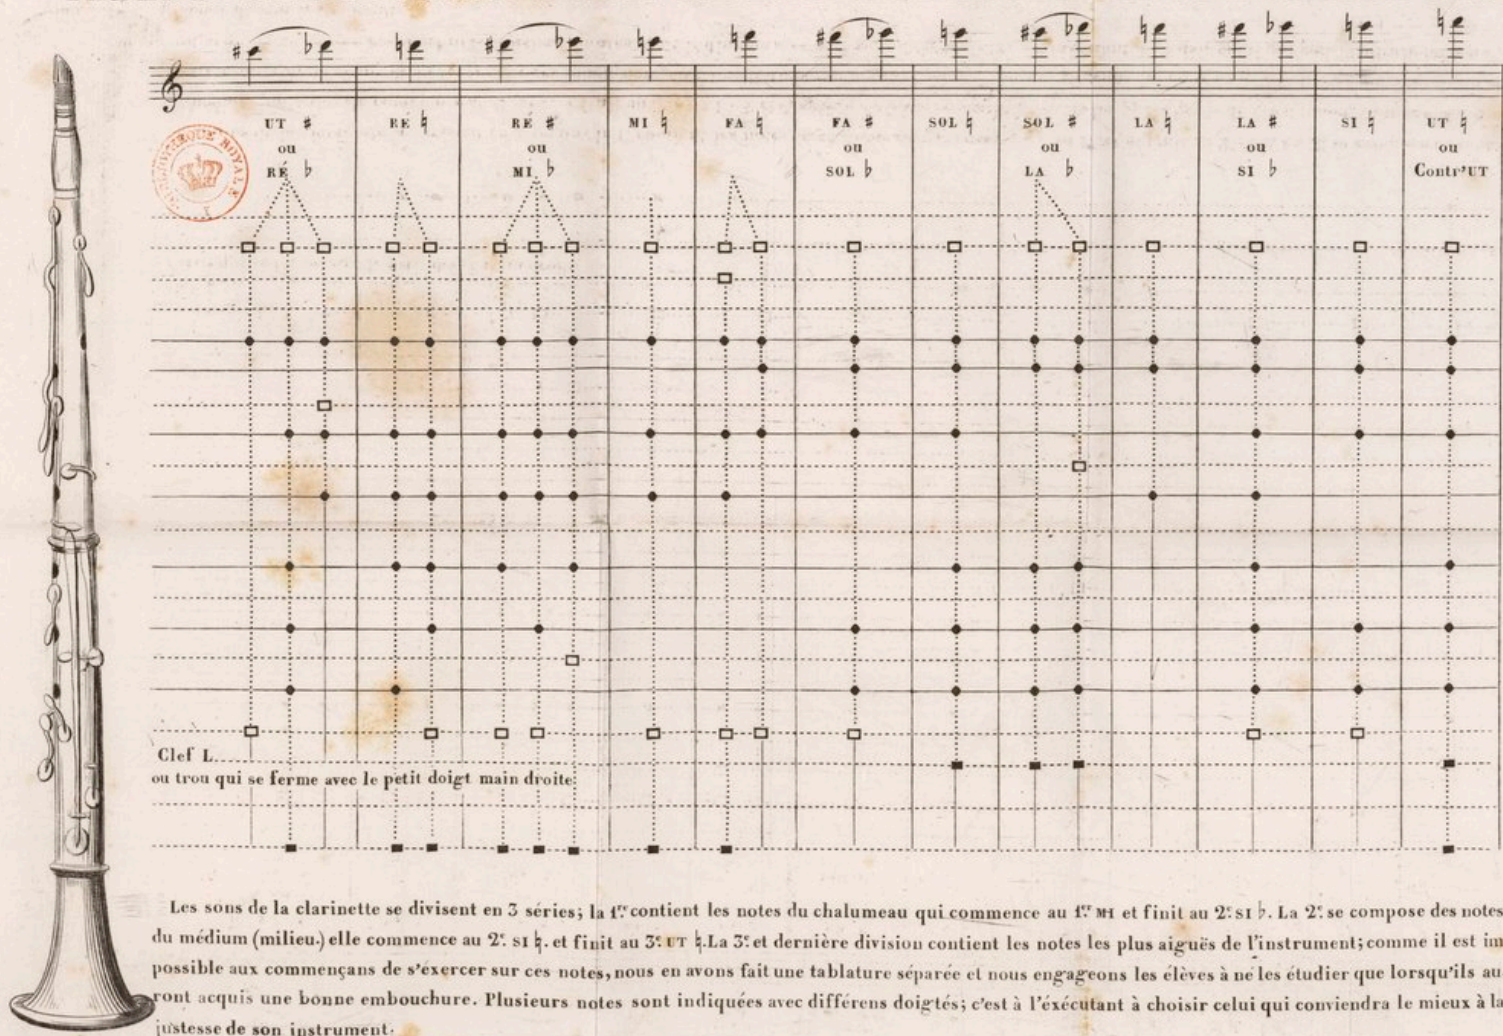 UT ♯ RÉ ♮ RÉ ♯ MI ♮ FA ♮ FA ♯ SOL ♮ SOL ♯ LA ♮ LA ♯ SI ♮ UT ♮
ou ou ou ou ou ou
RÉ ♭ MI ♭ SOL ♭ LA ♭ SI ♭ Contr'UT
BIBLIOTHEQUE ROYALE
Clef L
ou trou qui se ferme avec le petit doigt main droite
Les sons de la clarinette se divisent en 3 séries; la 1re contient les notes du chalumeau qui commence au 1er MI et finit au 2e SI ♭. La 2e se compose des notes
du médium (milieu.) elle commence au 2e SI ♮. et finit au 3e UT ♮. La 3e et dernière division contient les notes les plus aiguës de l'instrument; comme il est im
possible aux commençans de s'éxercer sur ces notes, nous en avons fait une tablature séparée et nous engageons les élèves à ne les étudier que lorsqu'ils au
ront acquis une bonne embouchure. Plusieurs notes sont indiquées avec différens doigtés; c'est à l'éxécutant à choisir celui qui conviendra le mieux à la
justesse de son instrument.